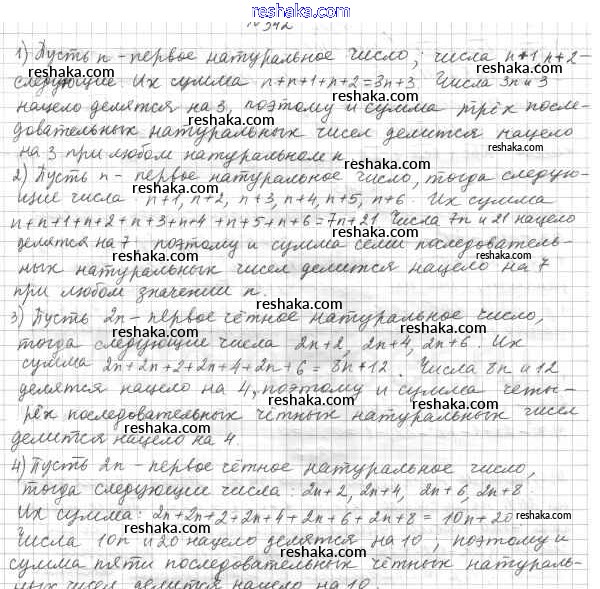 reshaka.com
№ 342
1) Пусть n - первое натуральное число, числа n+1, n+2 -
следующие. Их сумма n+n+1+n+2=3n+3. Числа 3n и 3
нацело делятся на 3, поэтому и сумма трёх после-
довательных натуральных чисел делится нацело
на 3 при любом натуральном n.
2) Пусть n - первое натуральное число, тогда следую-
щие числа n+1, n+2, n+3, n+4, n+5, n+6. Их сумма
n+n+1+n+2+n+3+n+4+n+5+n+6=7n+21. Числа 7n и 21 нацело
делятся на 7, поэтому и сумма семи последователь-
ных натуральных чисел делится нацело на 7
при любом значении n.
3) Пусть 2n - первое чётное натуральное число,
тогда следующие числа 2n+2, 2n+4, 2n+6. Их
сумма 2n+2n+2+2n+4+2n+6=8n+12. Числа 8n и 12
делятся нацело на 4, поэтому и сумма четы-
рёх последовательных чётных натуральных чисел
делится нацело на 4.
4) Пусть 2n - первое чётное натуральное число,
тогда следующие числа: 2n+2, 2n+4, 2n+6, 2n+8
Их сумма: 2n+2n+2+2n+4+2n+6+2n+8=10n+20
Числа 10n и 20 нацело делятся на 10; поэтому и
сумма пяти последовательных чётных натураль-
ных чисел делится нацело на 10.